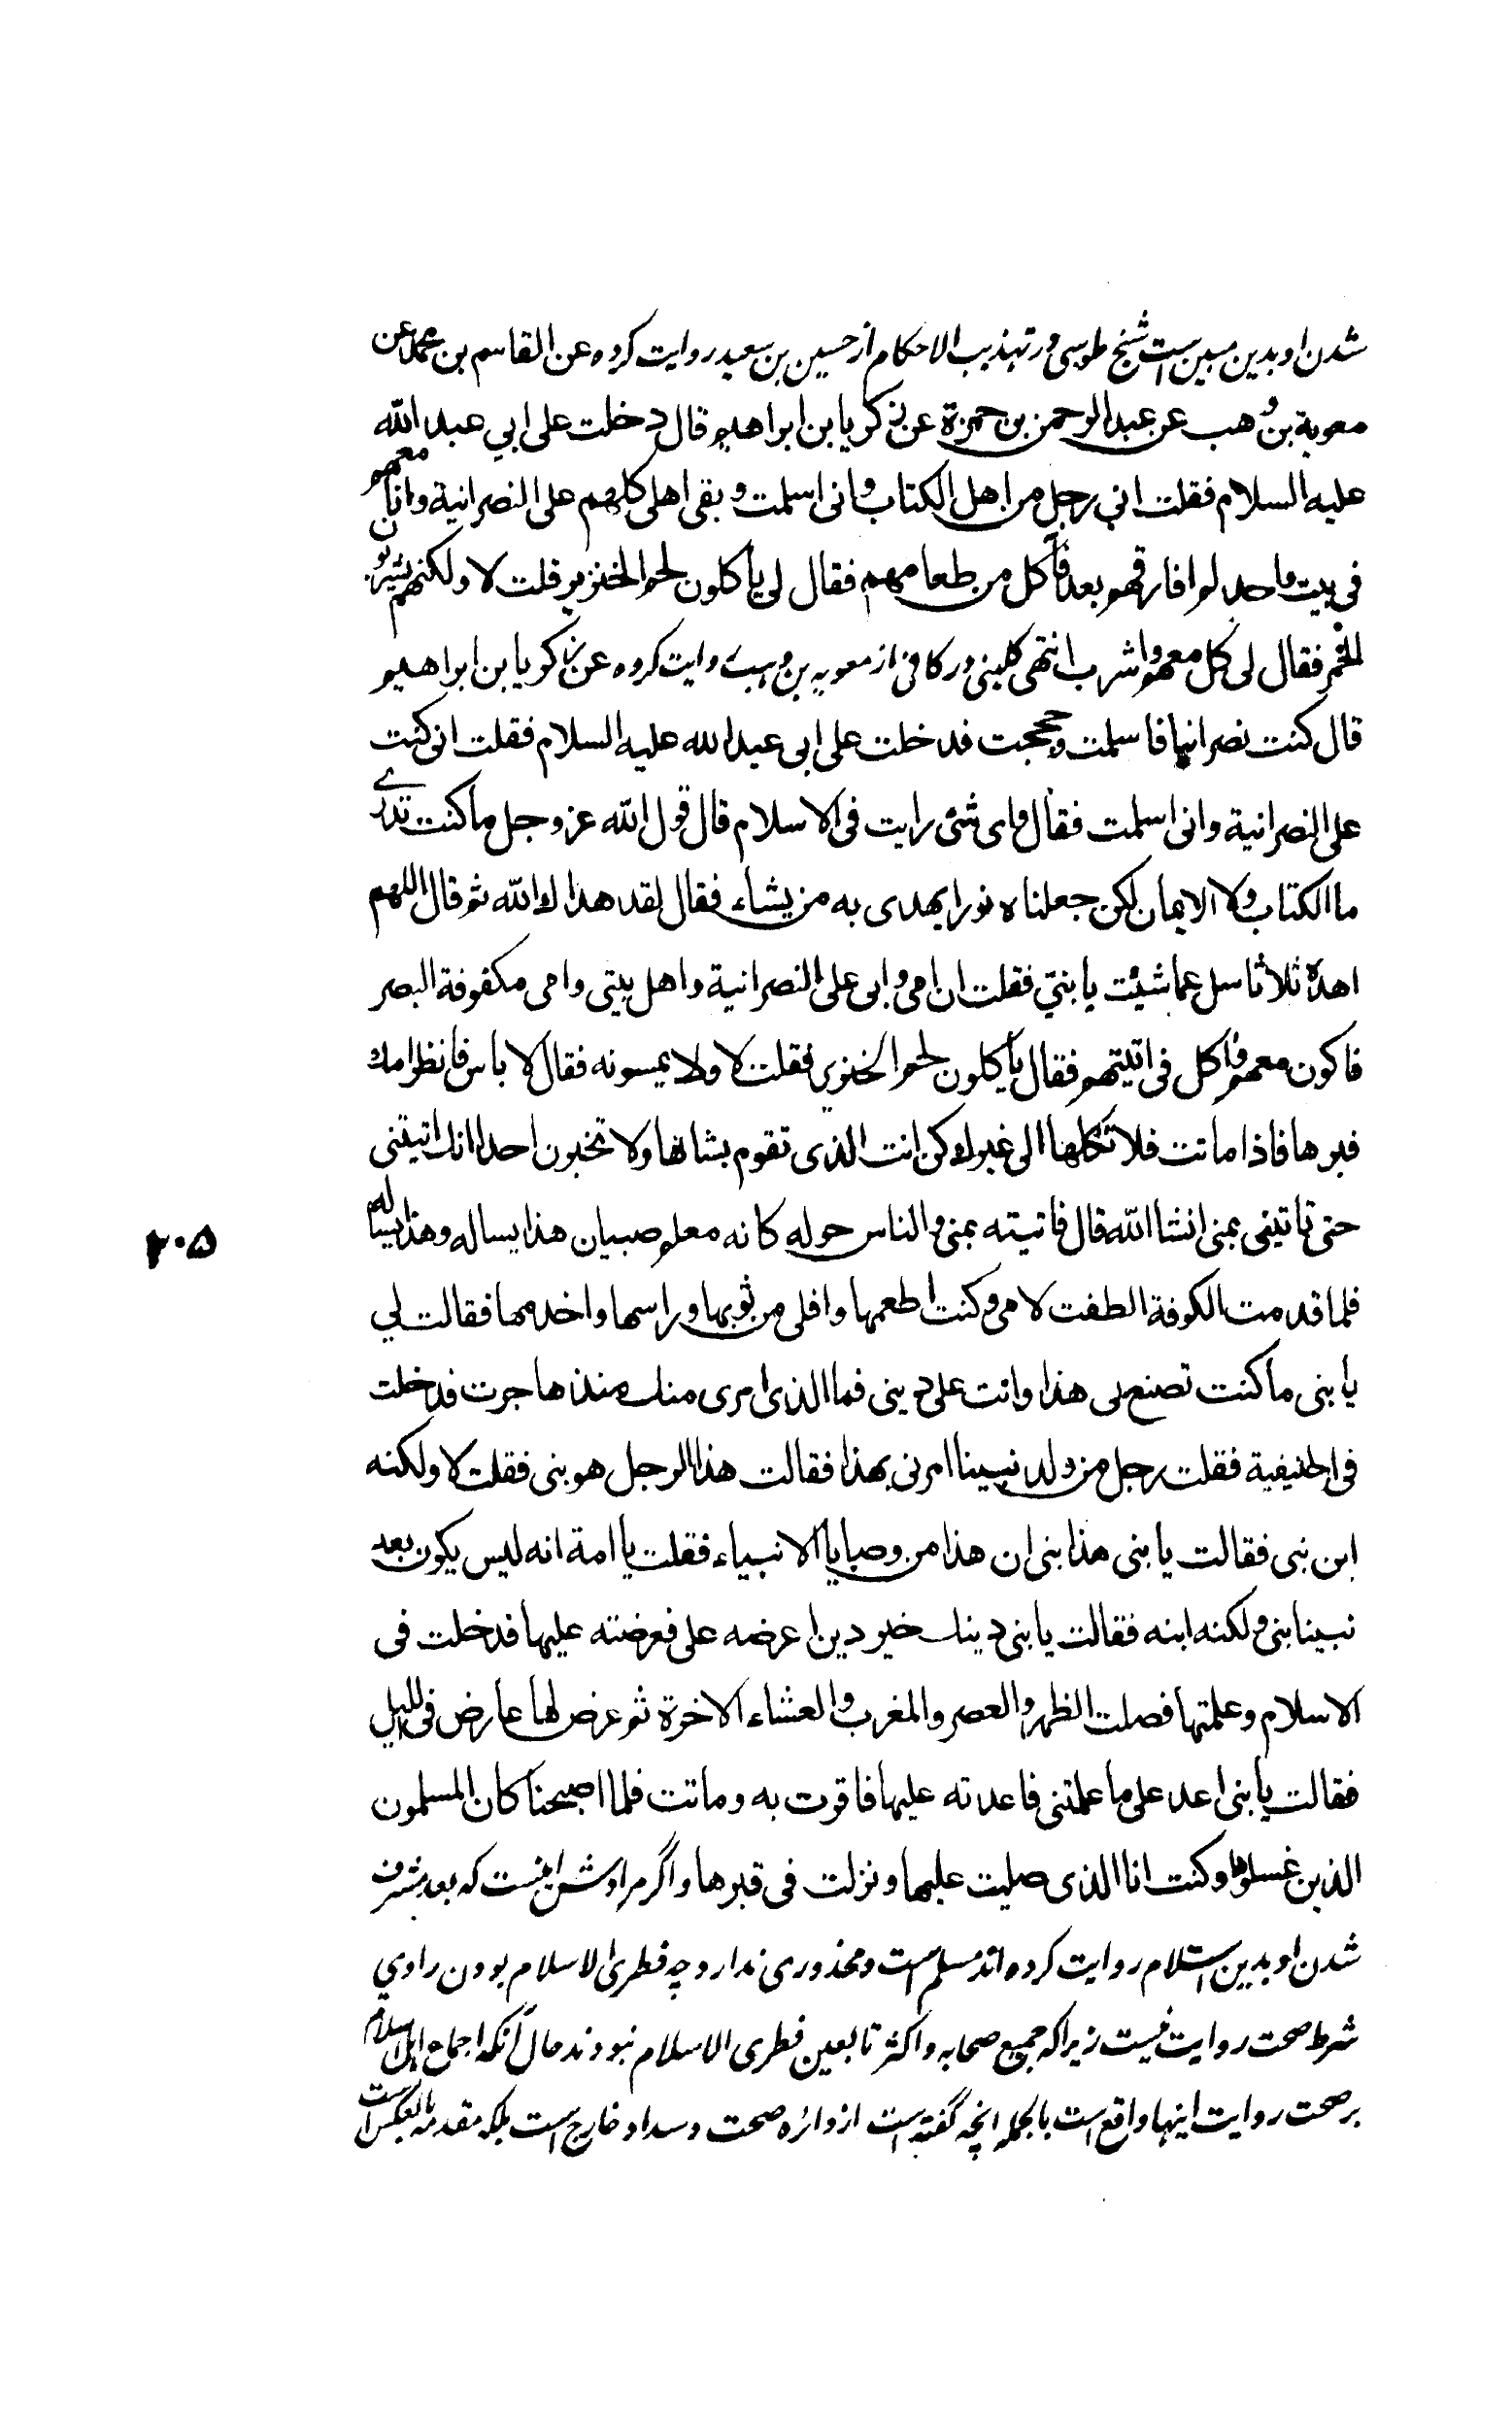 شدن او بدین مبین است شیخ طوسی در تهذیب الاحکام از حسین بن سعید روایت کرده عن القاسم بن محمد عن
معوية بن وهب عن عبد الرحمن بن حمزة عن زكريا بن ابراهيم قال دخلت على ابي عبد الله
عليه السلام فقلت اني رجل من اهل الكتاب واني اسلمت وبقى اهلى كلهم على النصرانية وانا معهم
فى بيت واحد لم افارقهم بعد فآكل من طعامهم فقال لى يأكلون لحم الخنزير قلت لا ولكنهم يشربون
الخمر فقال لى كل معهم واشرب انتهى کلینی در کافی از معویه بن وهب روایت کرده عن زكريا بن ابراهيم
قال كنت نصرانيا فاسلمت وحججت فدخلت على ابى عبد الله عليه السلام فقلت انى كنت
على النصرانية وانى اسلمت فقال واى شئ رايت فى الاسلام قال قول الله عز وجل ما كنت تدرے
ما الكتاب ولا الايمان لكن جعلناه نورا يهدى به من يشاء فقال لقد هداك الله ثم قال اللهم
اهده ثلاثا سل عما شئت يا بنى فقلت ان امى وابى على النصرانية واهل بيتى وامى مكفوفة البصر
فاكون معهم وآكل فى اتيتهم فقال يأكلون لحم الخنزير فقلت لا ولا يمسونه فقال لا باس فانظر امك
فبرها فاذا ماتت فلا تكلها الى غيرك كن انت الذى تقوم بشانها ولا تخبرن احدا انك اتيتنى
حتى تاتينى بمنى انشا الله قال فاتيته بمنى والناس حوله كانه معلم صبيان هذا يساله وهذا يساله
۲۰۵
فلما قدمت الكوفة الطفت لامى وكنت اطعمها وافلى من ثوبها وراسها واخدمها فقالت لي
يا بنى ما كنت تصنع بى هذا وانت على دينى فما الذى ارى منك منذ هاجرت فدخلت
فى الحنيفية فقلت رجل من ولد نبينا امرنى بهذا فقالت هذا الرجل هو نبى فقلت لا ولكنه
ابن نبى فقالت يا بنى هذا نبى ان هذا من وصايا الانبياء فقلت يا امة انه ليس يكون بعد
نبينا نبى ولكنه ابنه فقالت يا بنى دينك خير دين اعرضه على فعرضته عليها فدخلت فى
الاسلام وعلمتها فصلت الظهر والعصر والمغرب والعشاء الاخرة ثم عرض لها عارض فى الليل
فقالت يا بنى اعد على ما علمتنى فاعدته عليها فاقرت به وماتت فلما اصبحنا كان المسلمون
الذين غسلوها وكنت انا الذى صليت عليها ونزلت فى قبرها واگر مرادش اینست که بعد مشرف
شدن او بدین اسلام روایت کرده اند مسلم است ومحذوری ندارد چه فطری الاسلام بودن راوی
شرط صحت روایت نیست زیرا که جمیع صحابه و اکثر تابعین فطری الاسلام نبودند حال آنکه اجماع اهل اسلام
بر صحت روایت اینها واقع است بالجمله انچه گفته است از دائره صحت و سداد خارج است بلکه مقدمه بالعکس است